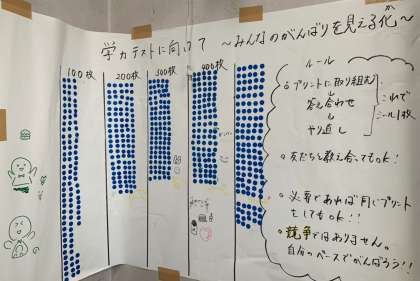 学力テストに向けて ～みんなのがんばりを見える化～
か
100枚
200枚
300枚
400枚
ルール
○プリントに取り組む
↓
答え合わせ
↓
やり直し
これで
シール1枚
○友だちと教え合ってもOK!
○必要であれば同じプリント
をしてもOK!!
○競争ではありません。
自分のペースでがんばろう!!